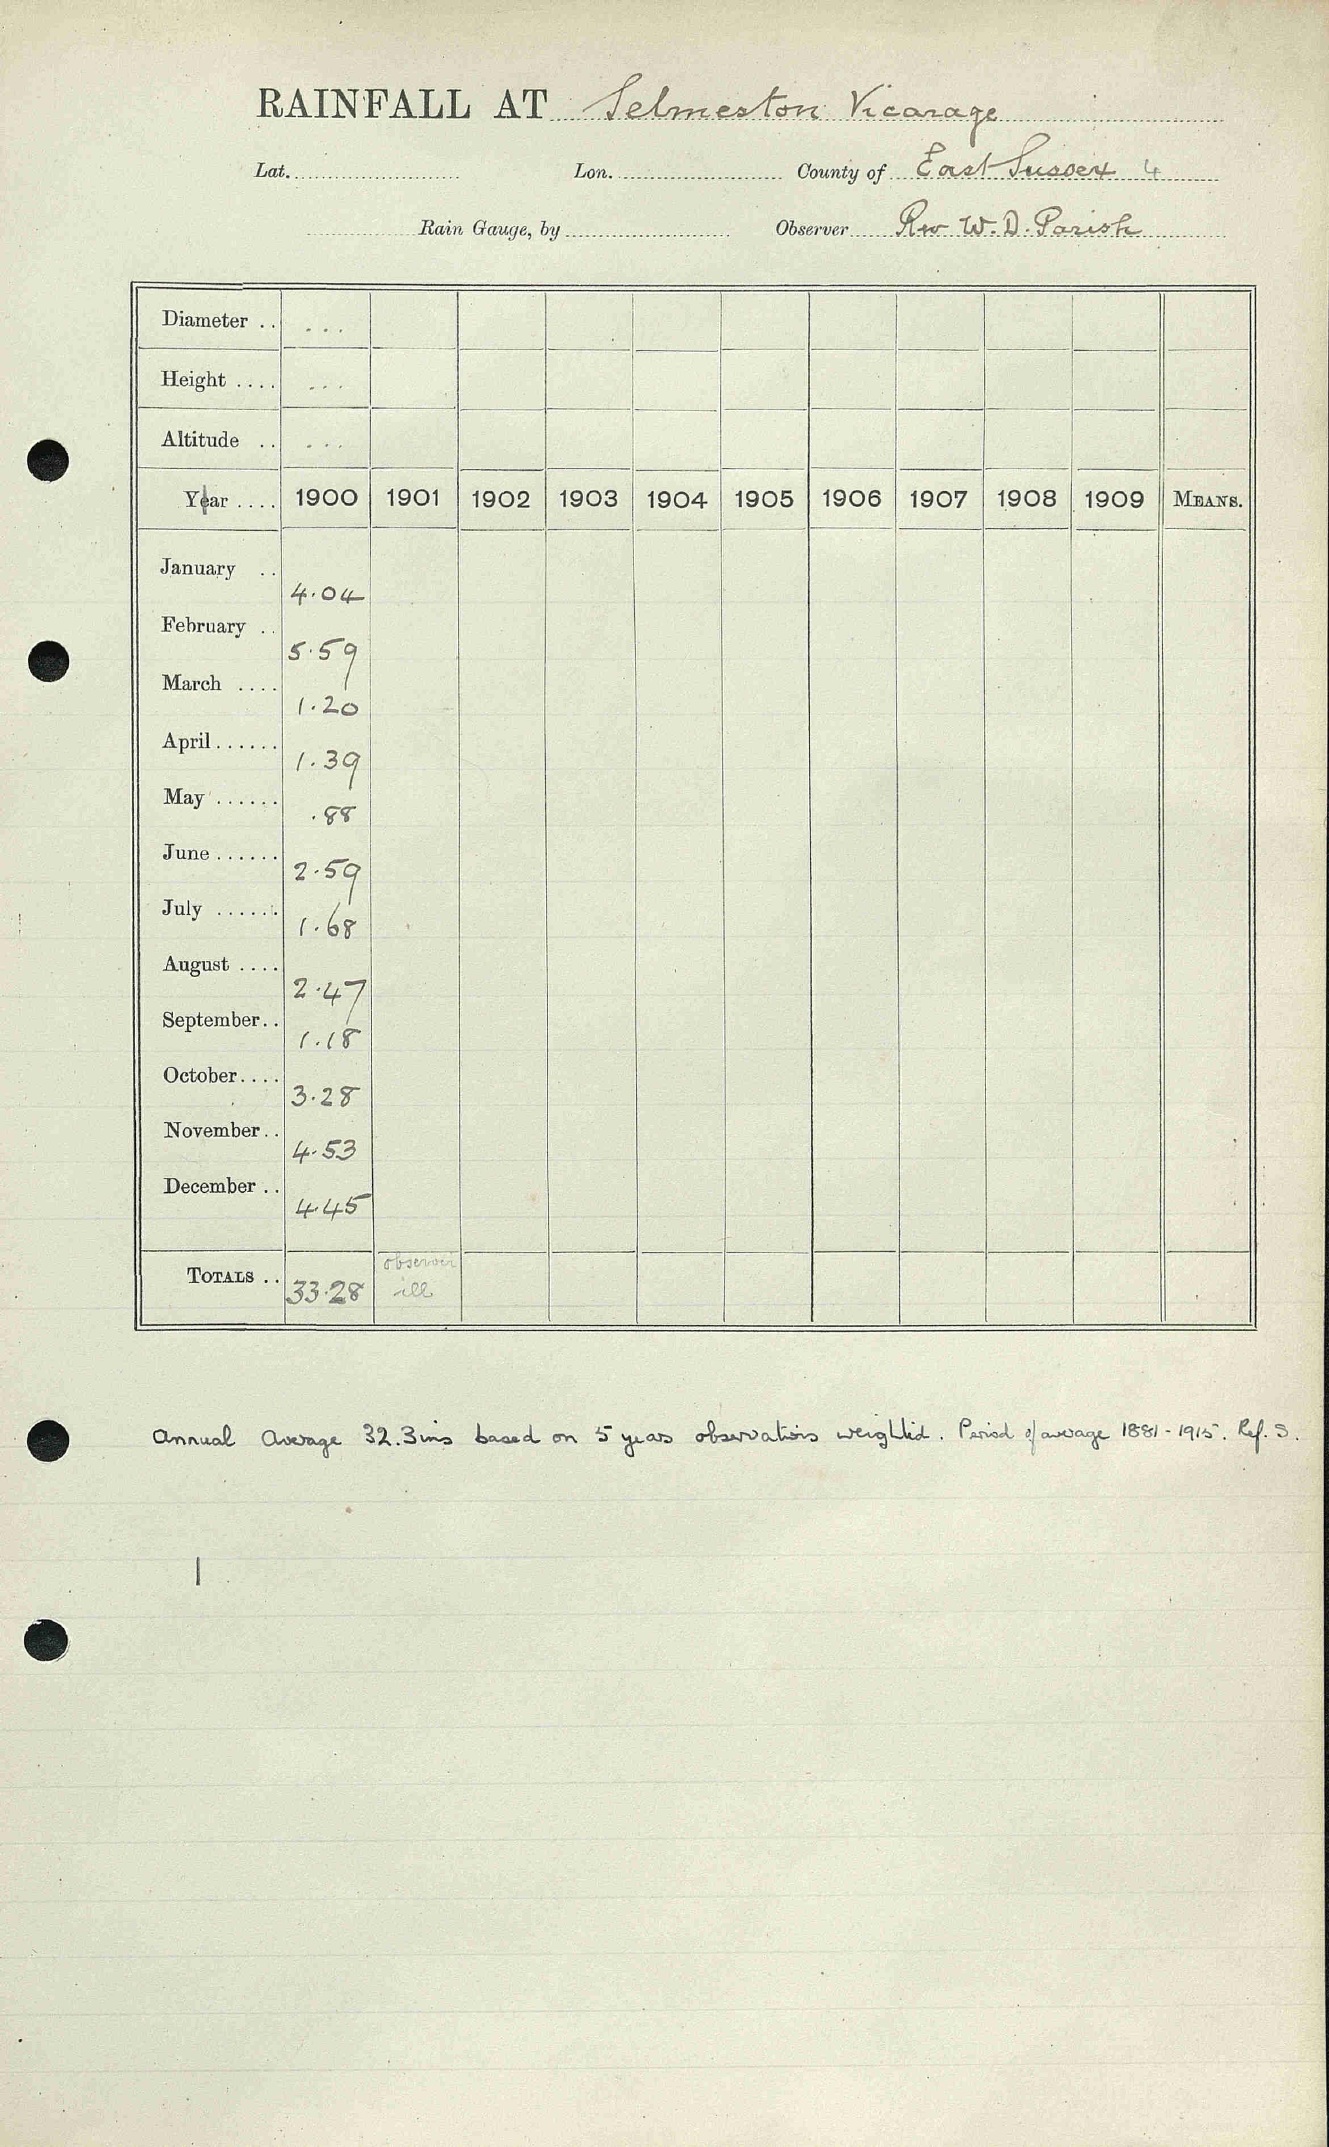 RAINFALL AT Selmeston Vicarage
Lat. Lon. County of East Sussex 4
Rain Gauge, by Observer Rev W. D. Parish
Diameter .. ...
Height .... ...
Altitude .. ...
Year .... 1900 1901 1902 1903 1904 1905 1906 1907 1908 1909 MEANS.
January .. 4.04
February .. 5.59
March .... 1.20
April ...... 1.39
May ...... .88
June ...... 2.59
July ...... 1.68
August .... 2.47
September .. 1.18
October .... 3.28
November .. 4.53
December .. 4.45
TOTALS .. 33.28 observer ill
Annual Average 32.3 ins based on 5 years observations weighted. Period of average 1881-1915. Ref. S.